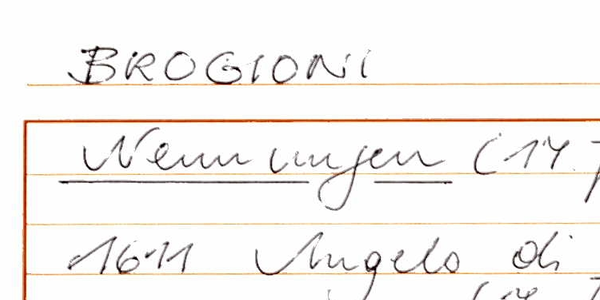 BROGIONI
Nennungen (17.
1611 Angelo di
(17.